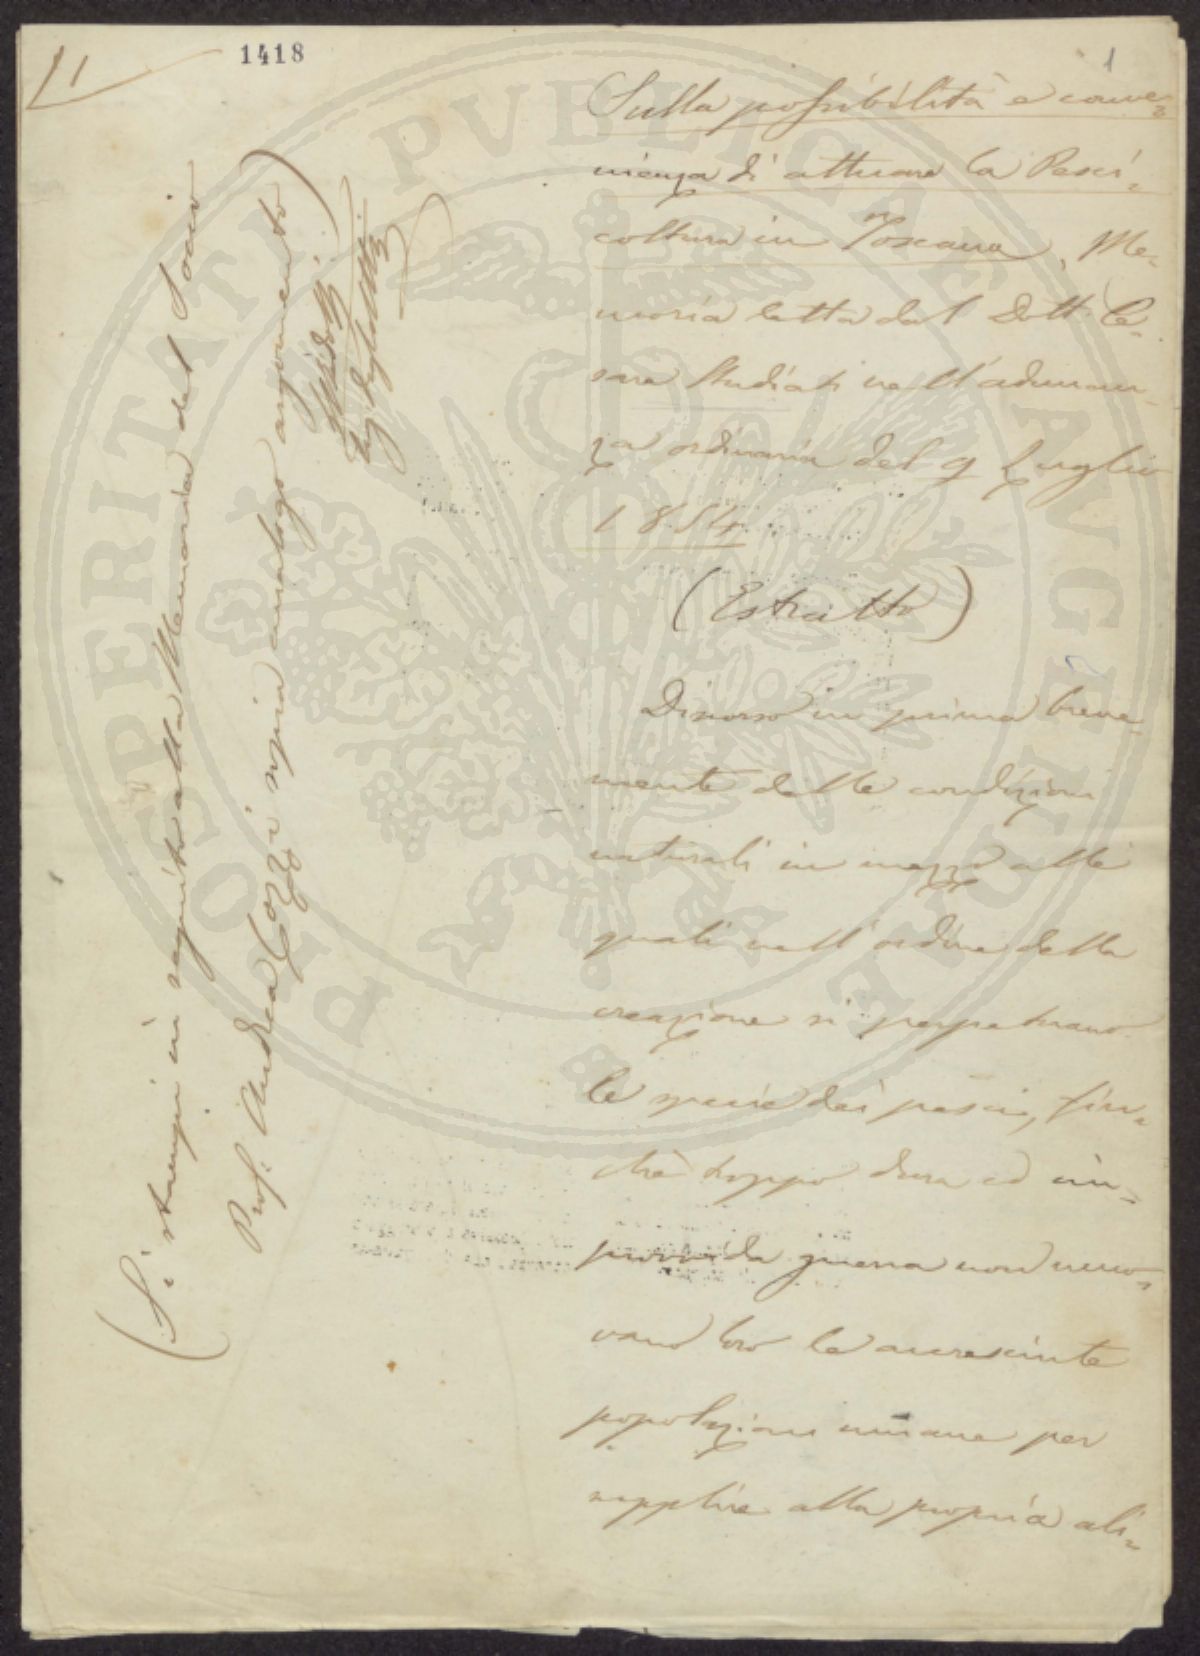 11
1418
1
Sulla possibilità e conve=
nienza di attuare la Pesci=
coltura in Toscana, Me=
moria letta dal Dott. Ce=
sare Studiati nell'adunan=
za ordinaria del 9 Luglio
1854
(Estratto)
Discorso in prima breve=
mente delle condizioni
naturali in mezzo alle
quali nell'ordine della
creazione si perpetuano
le specie dei pesci, fin=
chè troppo dura ed im=
provvida guerra non muo=
vano loro le accresciute
popolazioni umane per
supplire alla propria ali=
(Si stampi in seguito alla Memoria del Socio
Prof. Andrea Cozzi sopra analogo argomento)
PROSPERITATI PVBLICAE AVGENDAE